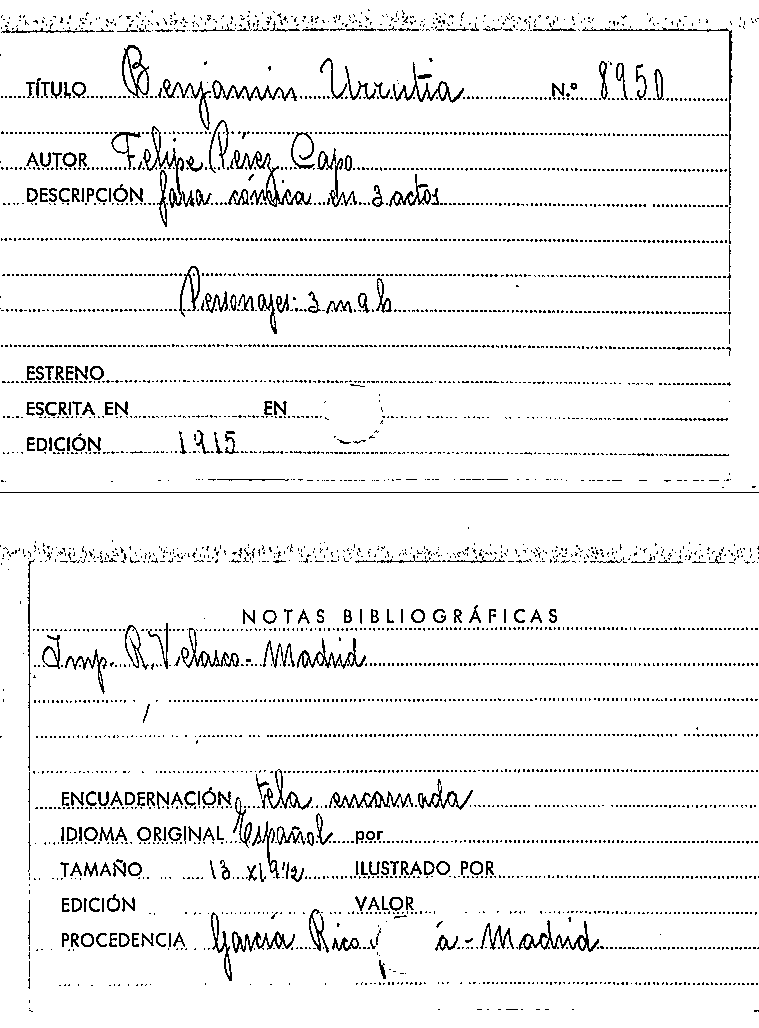 TÍTULO Benjamin Urrutia N.º 8950
AUTOR Felipe Pérez Capo
DESCRIPCIÓN farsa cómica en 3 actos
Personajes: 3 m 9 h
ESTRENO
ESCRITA EN EN
EDICIÓN 1915
NOTAS BIBLIOGRÁFICAS
Imp. R. Velasco - Madrid
ENCUADERNACIÓN Tela encarnada
IDIOMA ORIGINAL Español por
TAMAÑO 13 x 19 1/2 ILUSTRADO POR
EDICIÓN VALOR
PROCEDENCIA García Rico y á - Madrid